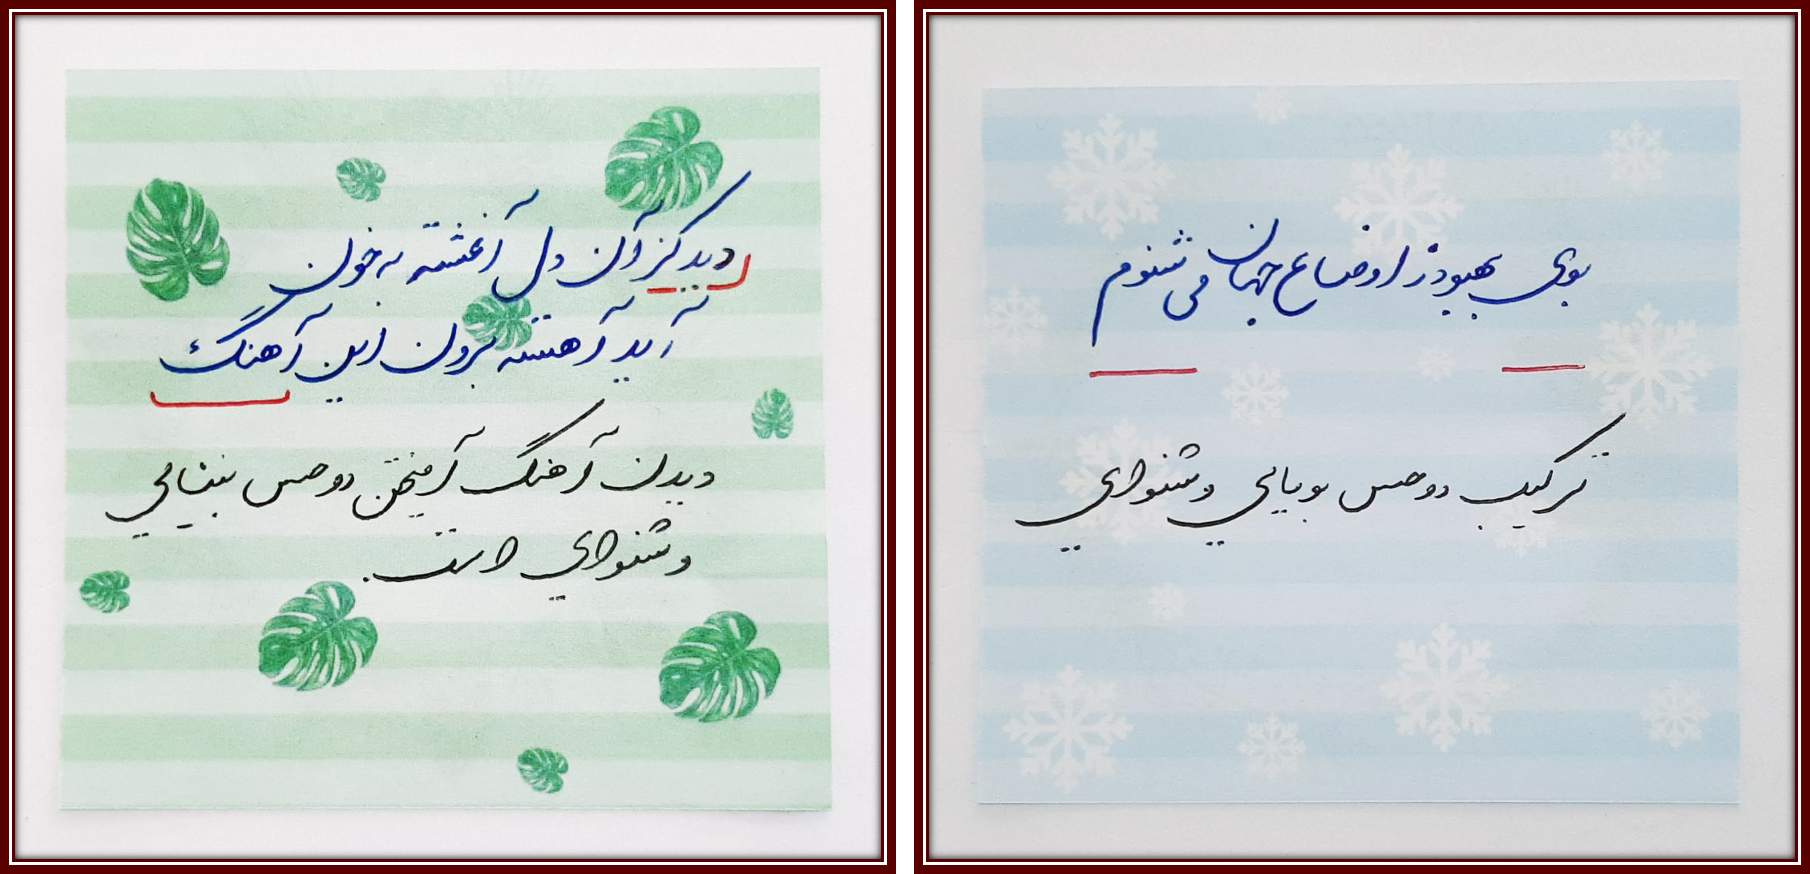 دید کز آن دل آغشته به خون
آید آهسته برون این آهنگ
دیدن آهنگ آمیختن دو حس بینایی
و شنوایی است.
بوی بهبود ز اوضاع جهان می شنوم
ترکیب دو حس بویایی و شنوایی